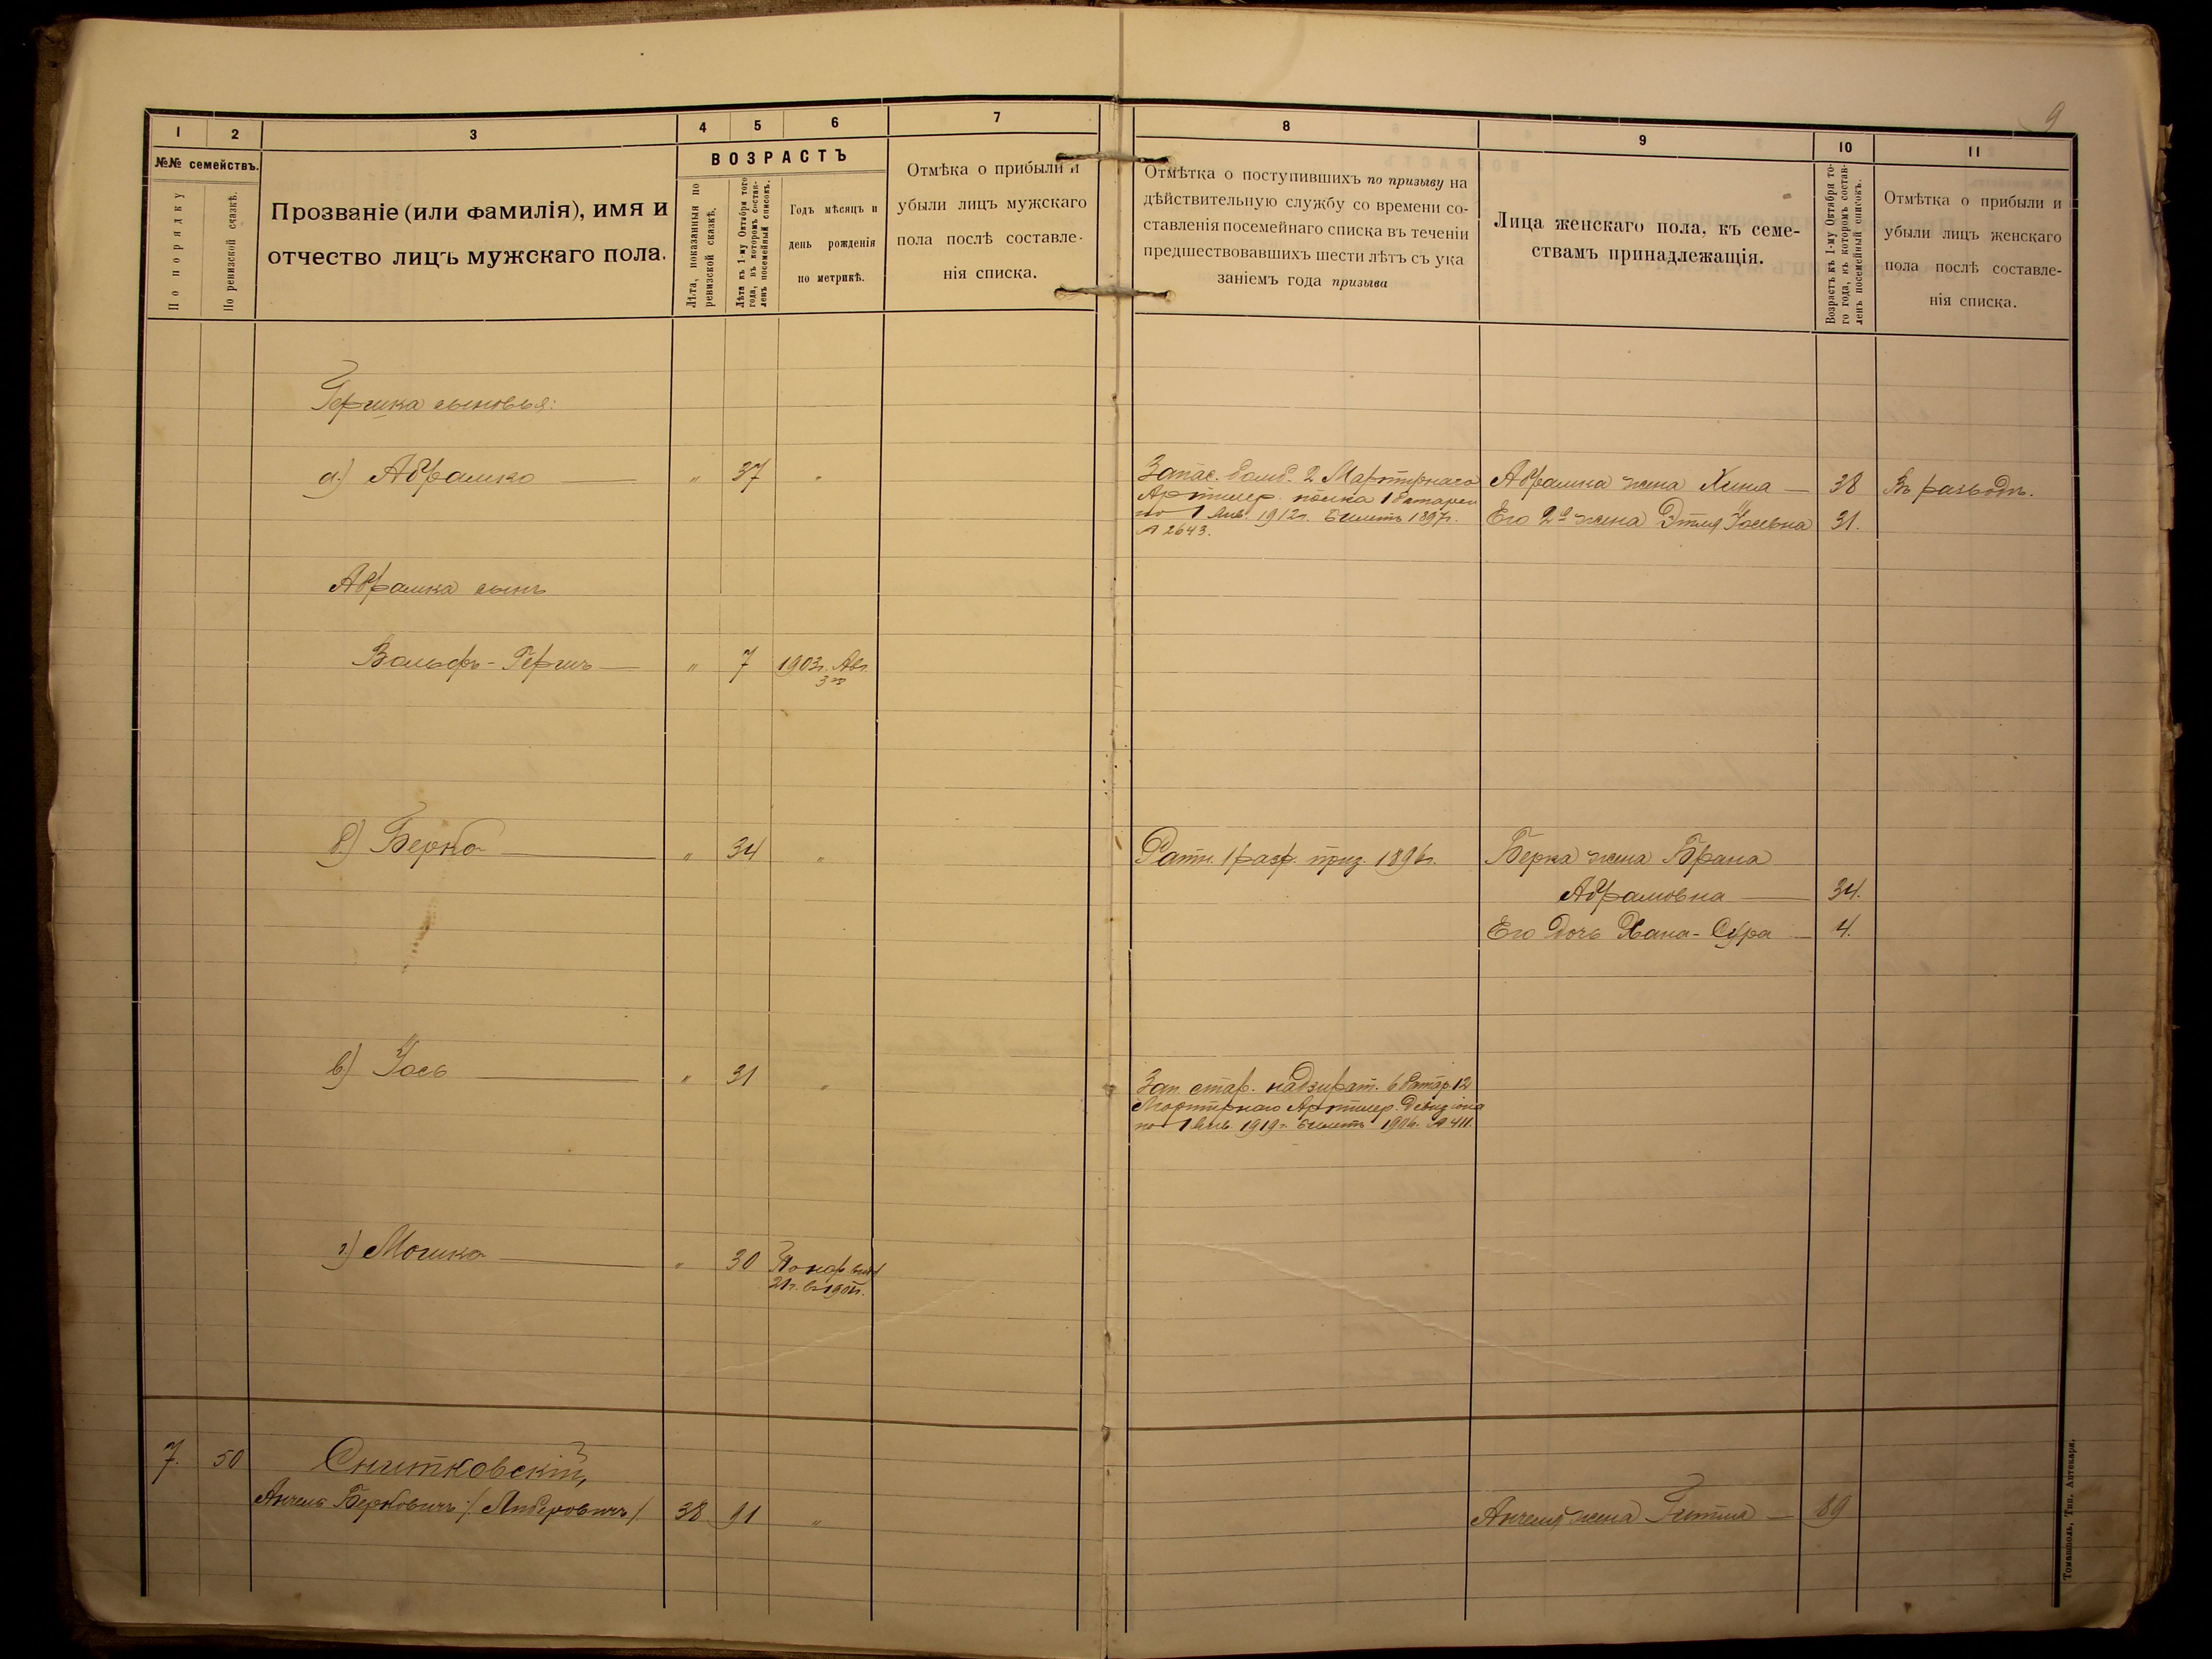 9
1 2 3 4 5 6 7 8 9 10 11
№№ семействъ.
По порядку
По ревизской сказкѣ.
Прозваніе (или фамилія), имя и
отчество лицъ мужскаго пола.
ВОЗРАСТЪ
Лѣта, показанныя по
ревизской сказкѣ.
Лѣта къ 1-му Октября того
года, въ которомъ состав-
ленъ посемейный списокъ.
Годъ мѣсяцъ и
день рожденія
по метрикѣ.
Отмѣка о прибыли и
убыли лицъ мужскаго
пола послѣ составле-
нія списка.
Отмѣтка о поступившихъ по призыву на
дѣйствительную службу со времени со-
ставленія посемейнаго списка въ теченіи
предшествовавшихъ шести лѣтъ съ ука
заніемъ года призыва
Лица женскаго пола, къ семе-
ствамъ принадлежащія.
Возрастъ къ 1-му Октября то-
го года, въ которомъ состав-
ленъ посемейный списокъ.
Отмѣтка о прибыли и
убыли лицъ женскаго
пола послѣ составле-
нія списка.
Гершка сыновья:
а) Абрамко — " 37 "
Запас. бомб. 2 Мартирнаго
Артилер. полка 1 батареи
по 1 Янв. 1912г. Билетъ 1897г.
№ 2643.
Абрамка жена Хина — 38 Въ разводѣ.
Его 2я жена Этля Іосьвна 31.
Абрамка сынъ
Вольфъ-Гершъ — " 7 1903г. Авг.
3го
б) Берко — " 34 "
Ратн. 1 разр. приз. 1896г.
Берка жена Брана
Абрамовна — 34.
Его дочь Хана-Сура — 4.
в) Іось — " 31 "
Зап. стар. надзират. 6 батар. 12
Мортирнаго Артилер. Дивизіона
по 1 Янв. 1919г. Билетъ 1906г. № 411.
г) Мошко — " 30
По нар. виду
21г. въ 1901г.
7. 50 Снитковскій,
Анчель Берковичъ /Лидеровичъ/ 38 91 "
Анчеля жена Гитля — 89
Томашполь, Тип. Аптекаря.